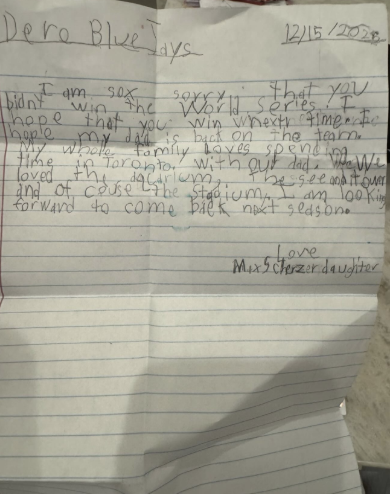 Dero Blue Jays
12/15/2025
I am sox sorry that you
didnt win the World Series. I
hope that you win next time
hople my dad is back on the team.
My whole family loves spending
time in Toronto with our dad. We
loved the the tower
and of couse the stadium. I am looking
forward to come back next season.
Love
Max Scherzer daughter